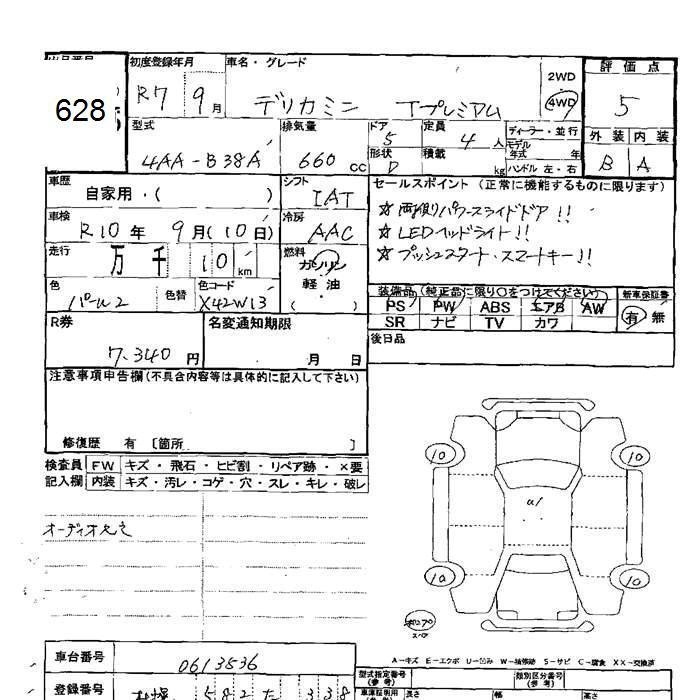 初度登録年月 車名・グレード 2WD 評価点
628 R7 9月 デリカミニ Tプレミアム 4WD 5
型式 排気量 ドア 5 定員 4人 ディーラー・並行 外装 内装
4AA-B38A 660 CC 形状 D 積載 kg モデル年式 年 ハンドル 左・右 B A
車歴 自家用・( ) シフト IAT セールスポイント (正常に機能するものに限ります)
車検 R10年 9月(10日) 冷房 AAC ☆両側パワースライドドア!!
☆LEDヘッドライト!!
走行 万 千 10 km 燃料 ガソリン 軽・油 ( ) ☆プッシュスタート・スマートキー!!
色 パール2 色替 色コード X42W13 装備品 (純正品に限り○をつけてください) 新車保証書
PS PW ABS エアB AW 有 無
SR ナビ TV カワ
R券 7.340円 名変通知期限 月 日 後日品
注意事項申告欄(不具合内容等は具体的に記入して下さい)
修復歴 有 [箇所 ]
検査員 FW キズ・飛石・ヒビ割・リペア跡・×要
記入欄 内装 キズ・汚レ・コゲ・穴・スレ・キレ・破レ
10 10
a1
オーディオレス
10 10
A－キズ E－エクボ U－凹み W－補修跡 S－サビ C－腐食 XX－交換済
車台番号 0613536 型式指定番号 (参考) 類別区分番号 (参考)
登録番号 札幌 582 た 338 長さ 幅 高さ